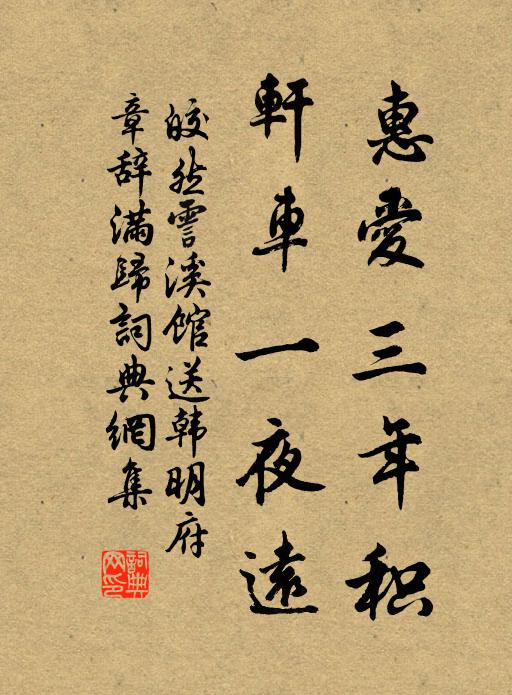 惠愛三年积
軒車一夜遠
皎然霅溪館送韩明府
章辞滿歸詞典網集
詞典網印